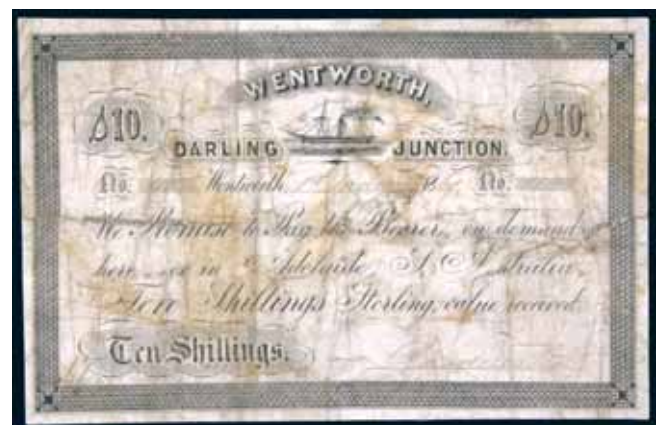 WENTWORTH,
10. 10.
DARLING JUNCTION.
No. Wentworth 18 No.
We Promise to Pay the Bearer, on demand
here or in Adelaide, S. Australia,
Ten Shillings Sterling, value received.
Ten Shillings.